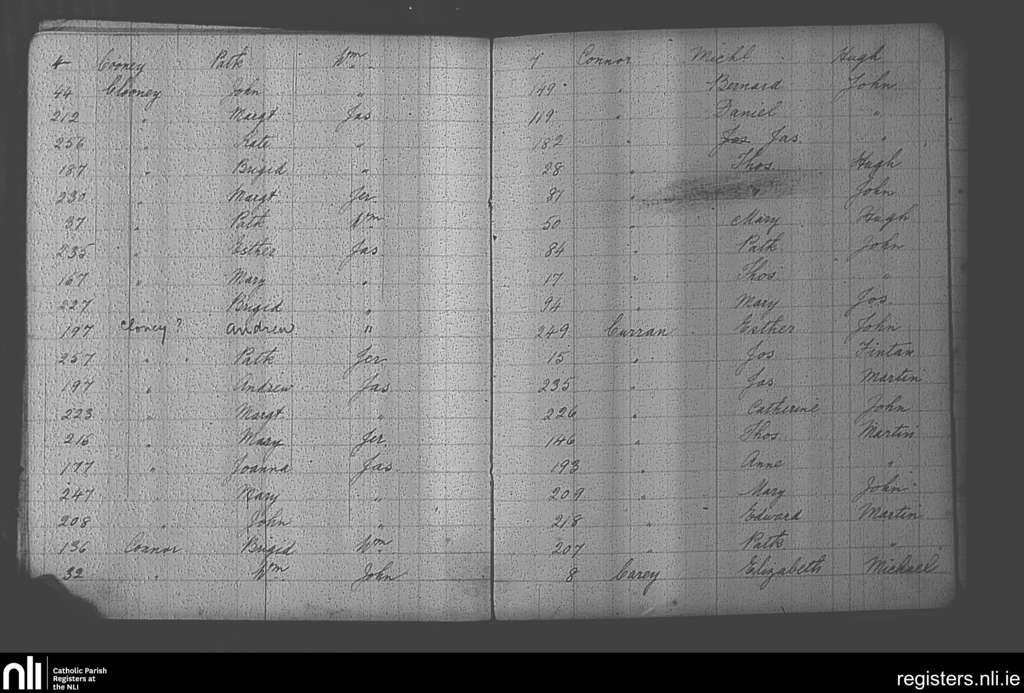 4 Cooney Patk Wm
44 Clooney John "
212 " Margt Jas
256 " Kate "
187 " Brigid "
230 " Margt Jer
37 " Patk Wm
235 " Esther Jas
167 " Mary "
227 " Brigid "
197 Cloney? Andrew "
257 " " Patk Jer
197 " Andrew Jas
223 " Margt "
216 " Mary Jer
177 " Joanna Jas
247 " Mary "
208 " John "
136 Connor Brigid Wm
32 " Wm John
7 Connor Michl Hugh
149 " Bernard John
119 " Daniel "
182 " Jas Jas "
28 " Thos Hugh
81 " " John
50 " Mary Hugh
84 " Patk John
17 " Thos "
94 " Mary Jos
249 Curran Esther John
15 " Jos Fintan
235 " Jas Martin
226 " Catherine John
146 " Thos Martin
193 " Anne "
209 " Mary John
218 " Edward Martin
207 " Patk "
8 Carey Elizabeth Michael
nli Catholic Parish
Registers at
the NLI
registers.nli.ie